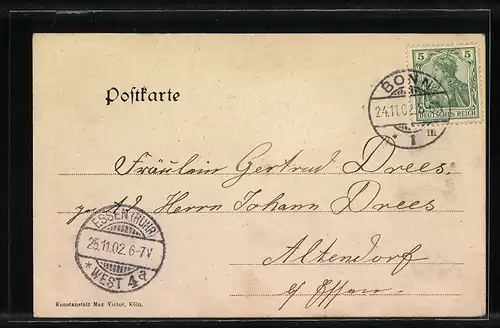 5 5
DEUTSCHES REICH
BONN
24.11.02.
* 1 m
Postkarte
Fräulein Gertrud Drees.
Herrn Johann Drees
Altendorf
b/ Essen.
ESSEN (RUHR)
25.11.02. 6-7V
* WEST 4a
Kunstanstalt Max Victor, Köln.